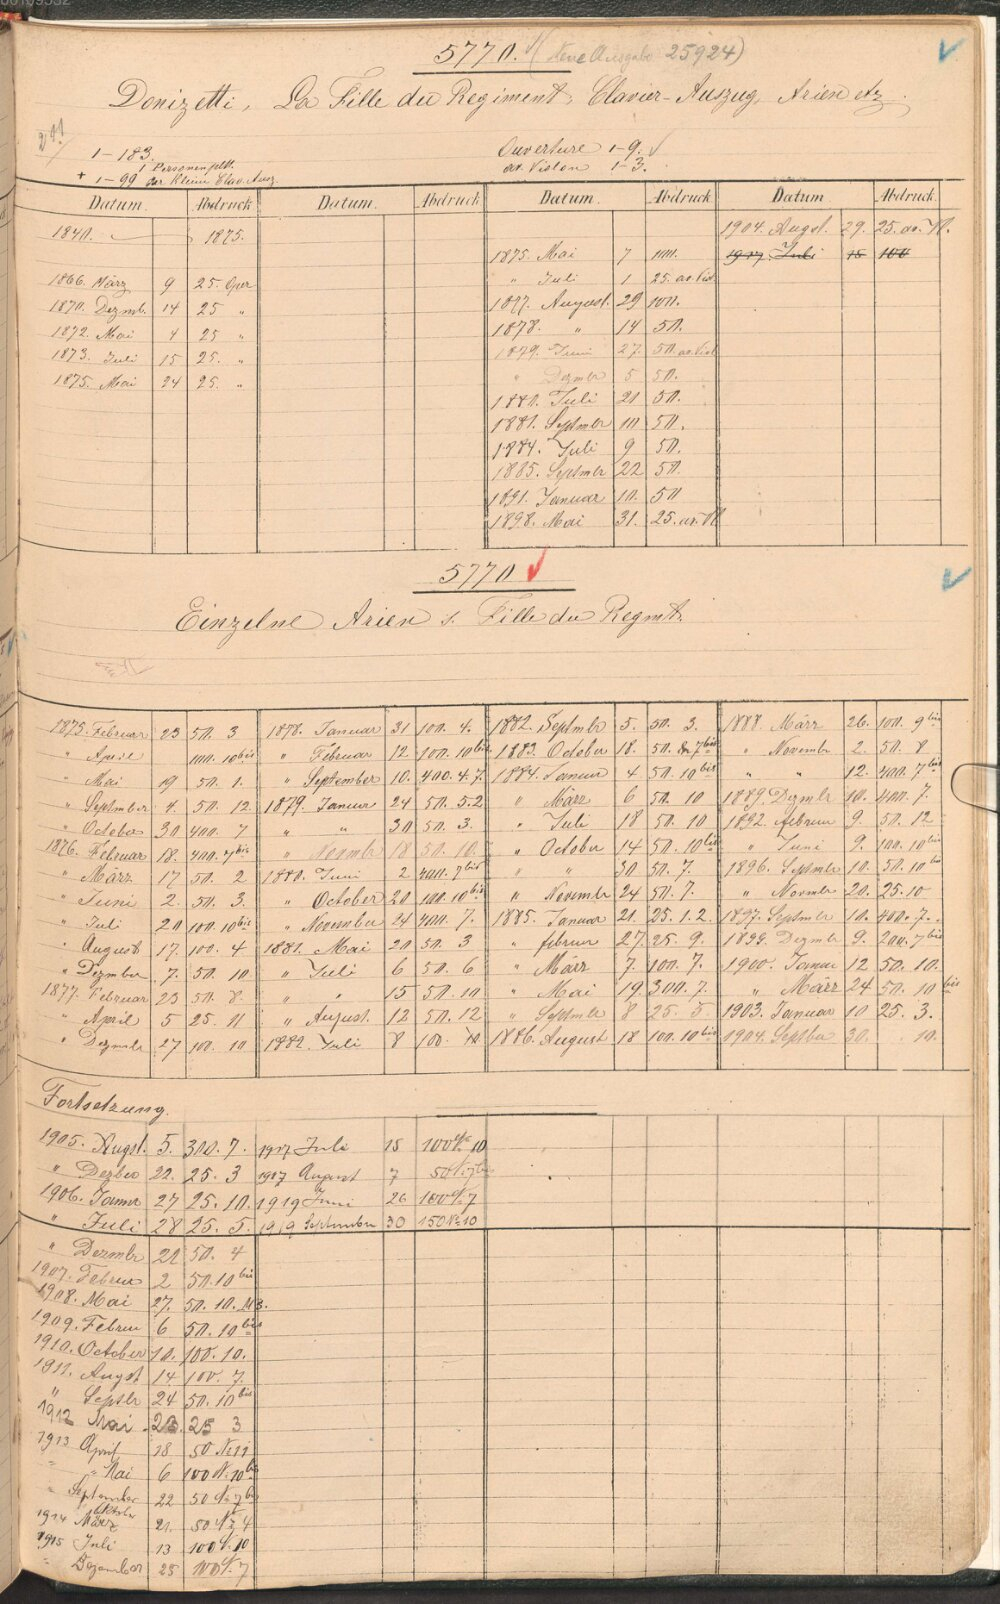 5770. (Neue Ausgabe 25924)
Donizetti, La Fille du Regiment, Clavier-Auszug, Arien etz
1-183.
1 Personenzettl.
+ 1-99 der kleine Clav. Ausz.
Ouverture 1-9.
ar. Violon 1-3.
Datum. Abdruck Datum. Abdruck Datum. Abdruck Datum Abdruck
1840. 1875.
1866. März 9 25. Oper
1870. Dezmb. 14 25 "
1872. Mai 4 25 "
1873. Juli 15 25. "
1875. Mai 24 25. "
1875. Mai 7 100.
" Juli 1 25. ar. Viol.
1877. August 29 100.
1878. " 14 50.
1879. Juni 27. 50. ar. Viol
" Dezmbr 5 50.
1880. Juli 21 50.
1881. Septmbr 10 50.
1884. Juli 9 50.
1885. Septmbr 22 50.
1891. Januar 10. 50
1898. Mai 31. 25. ar. Vl
1904. Augst. 29. 25. ar. Vl.
1917 Juli 15 100
5770
Einzelne Arien s. Fille du Regmt.
1875. Februar 23 50. 3
" April 100. 10 bis
" Mai 19 50. 1.
" Septmber 4. 50. 12.
" October 30 400. 7
1876. Februar 18. 400. 7 bis
" März 17 50. 2
" Juni 2. 50. 3.
" Juli 20 100. 10 bis
" August 17. 100. 4
" Dezmber 7. 50. 10
1877. Februar 23 50. 8.
" April 5 25. 11
" Dezmbr 27 100. 10
1878. Januar 31 100. 4.
" Februar 12 100. 10 bis
" September 10. 400. 4. 7.
1879. Januar 24 50. 5. 2
" " 30 50. 3.
" Novmbr 18 50. 10.
1880. Juni 2 400. 7 bis
" October 20 100. 10 bis
" November 24 400. 7.
1881. Mai 20 50. 3
" Juli 6 50. 6
" " 15 50. 10
" August. 12 50. 12
1882. Juli 8 100. 10
1882. Septmbr 5. 50. 3.
1883. October 18. 50. 7 bis
1884. Januar 4 50. 10 bis
" März 6 50. 10
" Juli 18 50. 10
" October 14 50. 10 bis
" " 30 50. 7.
" Novembr 24 50. 7.
1885. Januar 21. 25. 1. 2.
" februar 27. 25. 9.
" März 7. 100. 7.
" Mai 19. 300. 7.
" Septmbr 8 25. 5.
1886. August 18 100. 10 bis
1888. März 26. 100. 9 bis
" Novembr 2. 50. 8
" " 12. 400. 7 bis
1889. Dezmbr 10. 400. 7.
1892. februar 9 50. 12
" Juni 9. 100. 10 bis
1896. Septmbr 10. 50. 10 bis
" Novmbr 20. 25. 10
1897. Septmbr 10. 400. 7.
1899. Dezmbr 9. 200. 7 bis
1900. Januar 12 50. 10.
" März 24 50. 10 bis
1903. Januar 10 25. 3.
1904. Septbr 30. 10.
Fortsetzung.
1905. Augst. 5. 300. 7.
" Dezbr 22. 25. 3
1906. Januar 27 25. 10.
" Juli 28 25. 5.
" Dezmbr 21 50. 4
1907. Februar 2 50. 10 bis
1908. Mai 27. 50. 10.
1909. Februar 6 50. 10 bis
1910. October 10. 100. 10.
1911. Augst 14 100. 7.
" Septbr 24 50. 10 bis
1912 Mai 23. 25 3
1913 April 18 50 No 11
" Mai 6 100 N. 10 bis
" September 22 50 No 7 bis
Oktober
1914 März 21. 50 No 4
1915 Juli 13 100 N. 10
" Dezember 28 100 N. 7
1917 Juli 15 100 No 10
1917 August 7 50 N. 7 bis
1919 Juni 26 100 N. 7
1919 September 30 150 No 10